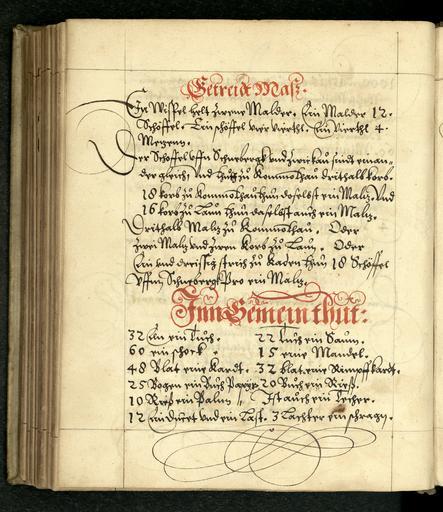 Getreidt Maß.
Ein Wispel helt zwene Malder. Ein Malder 12.
Schöffel. Ein schöffel vier vierthl. Ein vierthl 4
Metzenn.
Der Schöffel vffn Schnebergk vnd Zwickau sindt einan=
der gleich, vnd zu Kommothau drithalb korb.
18 korb zu Kommothau thun doselbst ein Maltz. Vnd
16 korb zu Laun thun daselbst auch ein Maltz.
Drithalb Maltz zu Kommothau. Oder
zwei Maltz vnd zwen Korb zu Laun. Oder
Ein vnd dreissig strich zu Kaden thun 18 Schöffel
vffm Schnebergk pro ein Maltz.
Inn Gemein thut:
32 Ein ein Tuch. 22 Tuch ein Saum.
60 ein schock. 15 eine Mandel.
48 Blat eine Kardt. 32 blat eine Rimpff kardt.
25 Bogen ein Buch Papyr. 20 Buch ein Rieß.
10 Rieß ein Palun. Ist auch ein Techer.
12 ein vnd ein Last. 3 Lachter ein schragn.